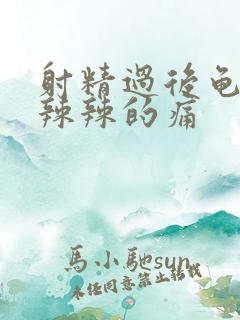 射精過後龟
辣辣的痛
馬小馳sun
未经同意禁止转载